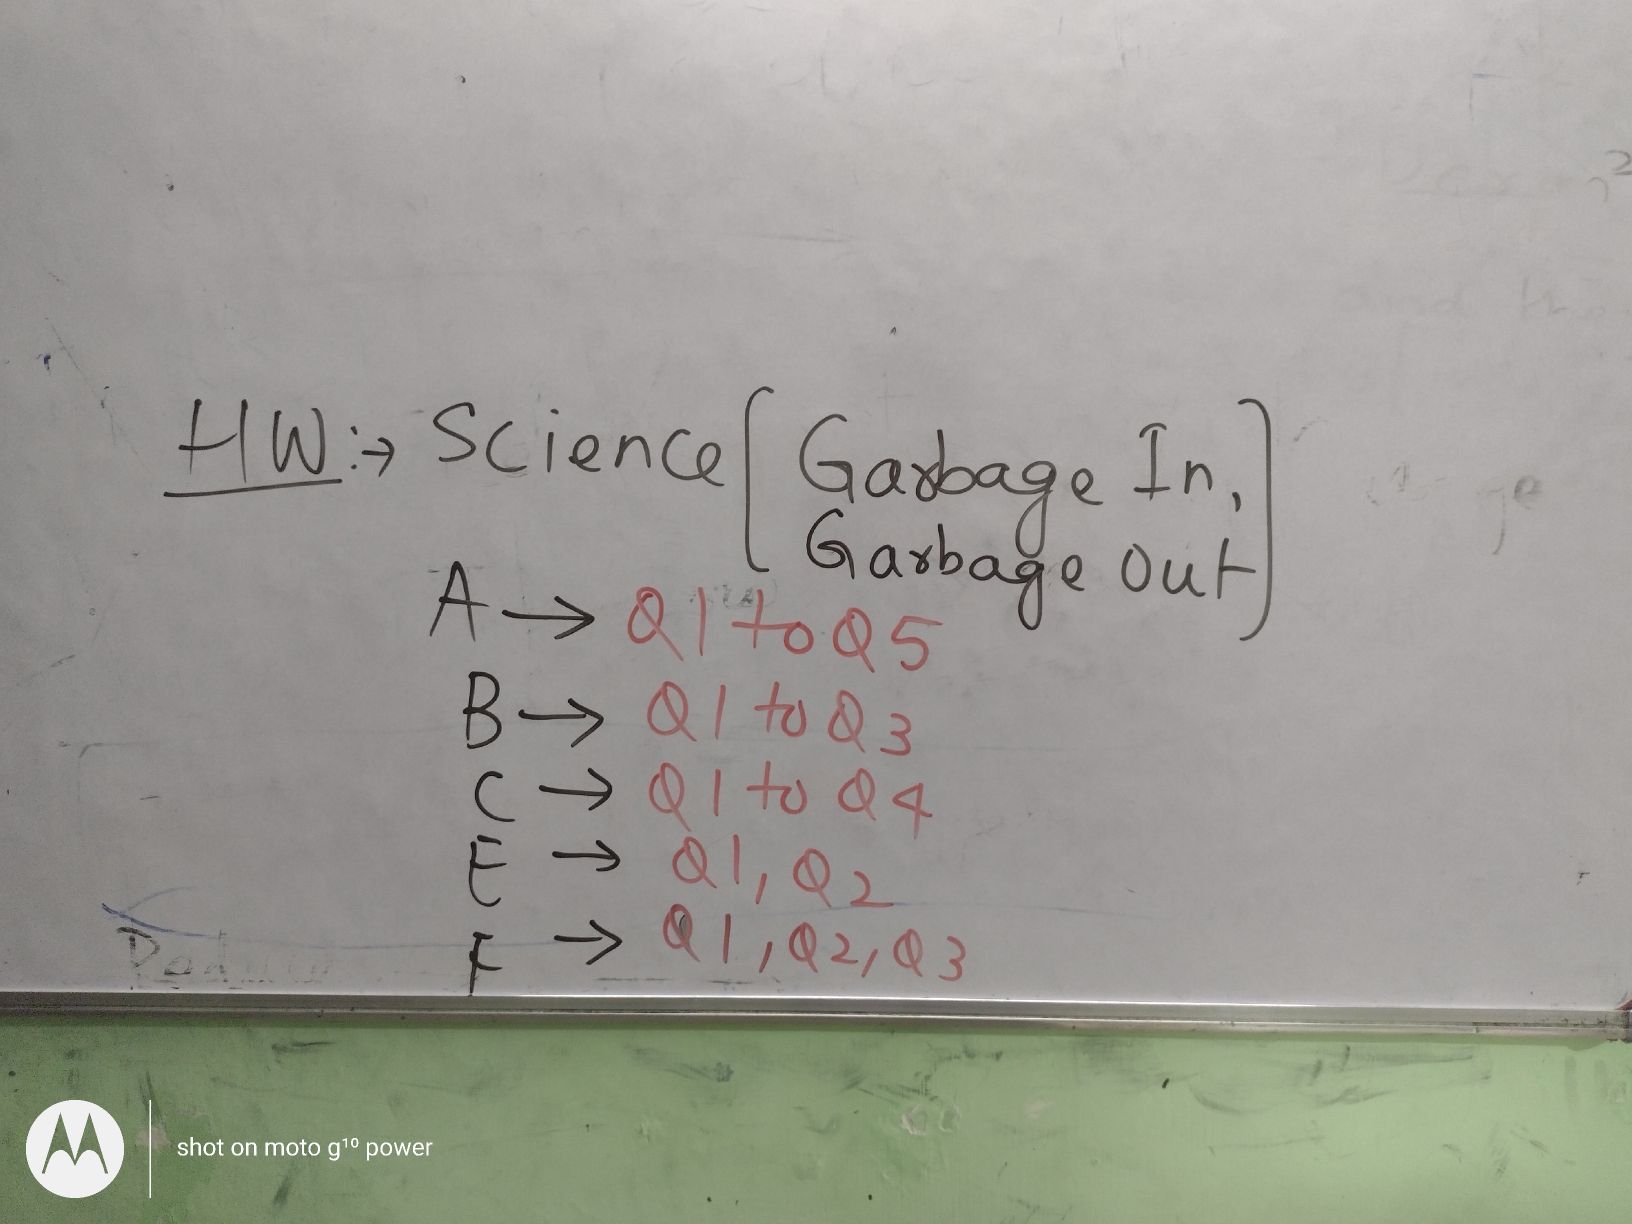 HW:→ Science [Garbage In,
Garbage Out]
A → Q1 to Q5
B → Q1 to Q3
C → Q1 to Q4
E → Q1, Q2
F → Q1, Q2, Q3
shot on moto g¹⁰ power